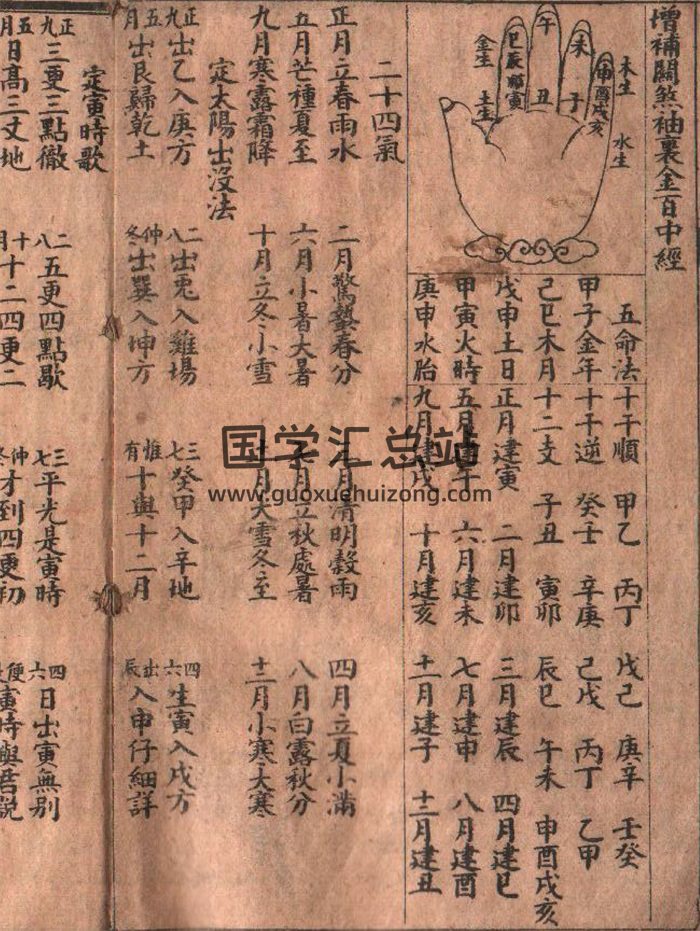 增補關煞袖裏金百中經
午
未
巳辰卯寅
申酉戌亥
丑
子
木生
水生
金生
土生
五命法
甲子金年
己巳木月
戊申土日
甲寅火時
庚申水胎
干干順 甲乙 丙丁 戊己 庚辛 壬癸
十干逆 癸壬 辛庚 己戊 丙丁 乙甲
十二支 子丑 寅卯 辰巳 午未 申酉戌亥
正月建寅 二月建卯 三月建辰 四月建巳
五月建午 六月建未 七月建申 八月建酉
九月建戌 十月建亥 十一月建子 十二月建丑
二十四氣
正月立春雨水 二月驚蟄春分 三月清明穀雨 四月立夏小滿
五月芒種夏至 六月小暑大暑 七月立秋處暑 八月白露秋分
九月寒露霜降 十月立冬小雪 十一月大雪冬至 十二月小寒大寒
定太陽出沒法
正九出乙入庚方 二八出兎入雞場 三七癸甲入辛地 四六生寅入戌方
五月出艮歸乾土 仲冬出巽入坤方 惟有十與十二月 出辰入申仔細詳
定寅時歌
正九三更三點徹 二八五更四點歇 三七平光是寅時 四六日出寅無别
五月日高三丈地 十月十二四更二 仲冬才到四更初 便寅時與君説
国学汇总站
www.guoxuehuizong.com